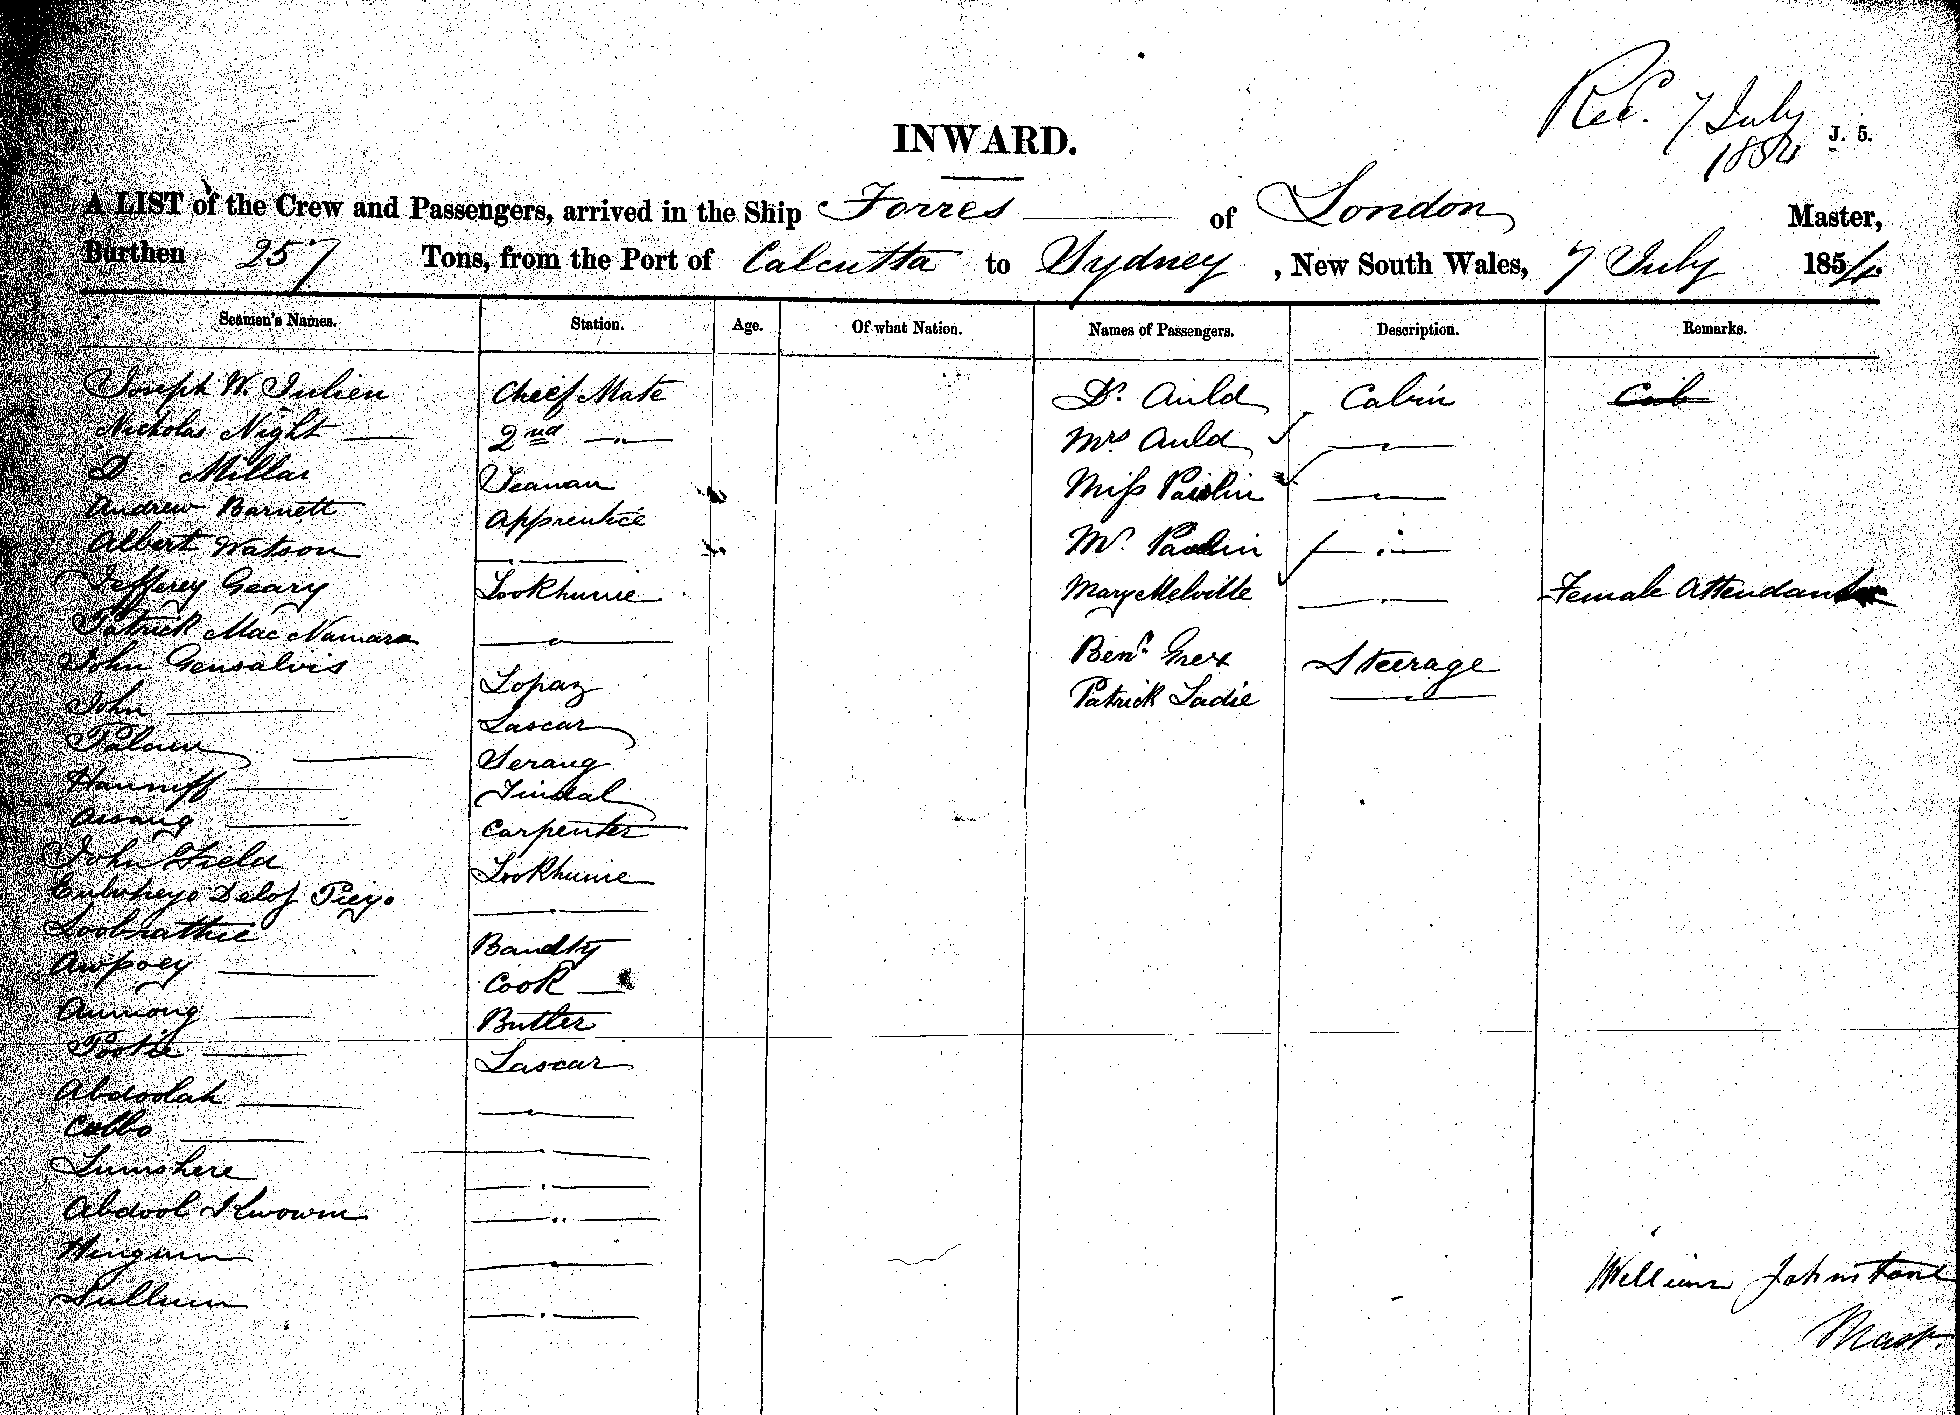 Rec. 7 July
1854
J. 5.
INWARD.
A LIST of the Crew and Passengers, arrived in the Ship Forres of London Master,
Burthen 257 Tons, from the Port of Calcutta to Sydney, New South Wales, 7 July 1854.
Seamen's Names. Station. Age. Of what Nation. Names of Passengers. Description. Remarks.
Joseph W. Julien Cheef Mate Dr. Auld Cabin Cab
Nicholas Night 2nd — " — Mrs Auld — " —
D Millar Seaman Miss Paislin — " —
Andrew Barnett Apprentice Mr. — " —
Albert Watson — " —
Jefferey Geary Lookhunie Mary Melville — " — Female Attendant
Patrick Mac Namara — " — Benn. Grex Steerage
John Gensalvis Lopaz Patrick Ladie — " —
John Lascar
Serang
Hanniff Tindal
Assang Carpenter
John Field Lookhunie
Piezo — " —
Loobrattie
Awpoey Cook
Aumong Butler
Pootie Lascar
Abdoolah — " —
Cobbo — " —
Lumshere — " —
Abdool — " —
Hingun — " —
Sullum — " —
William Johnstone
Mast.